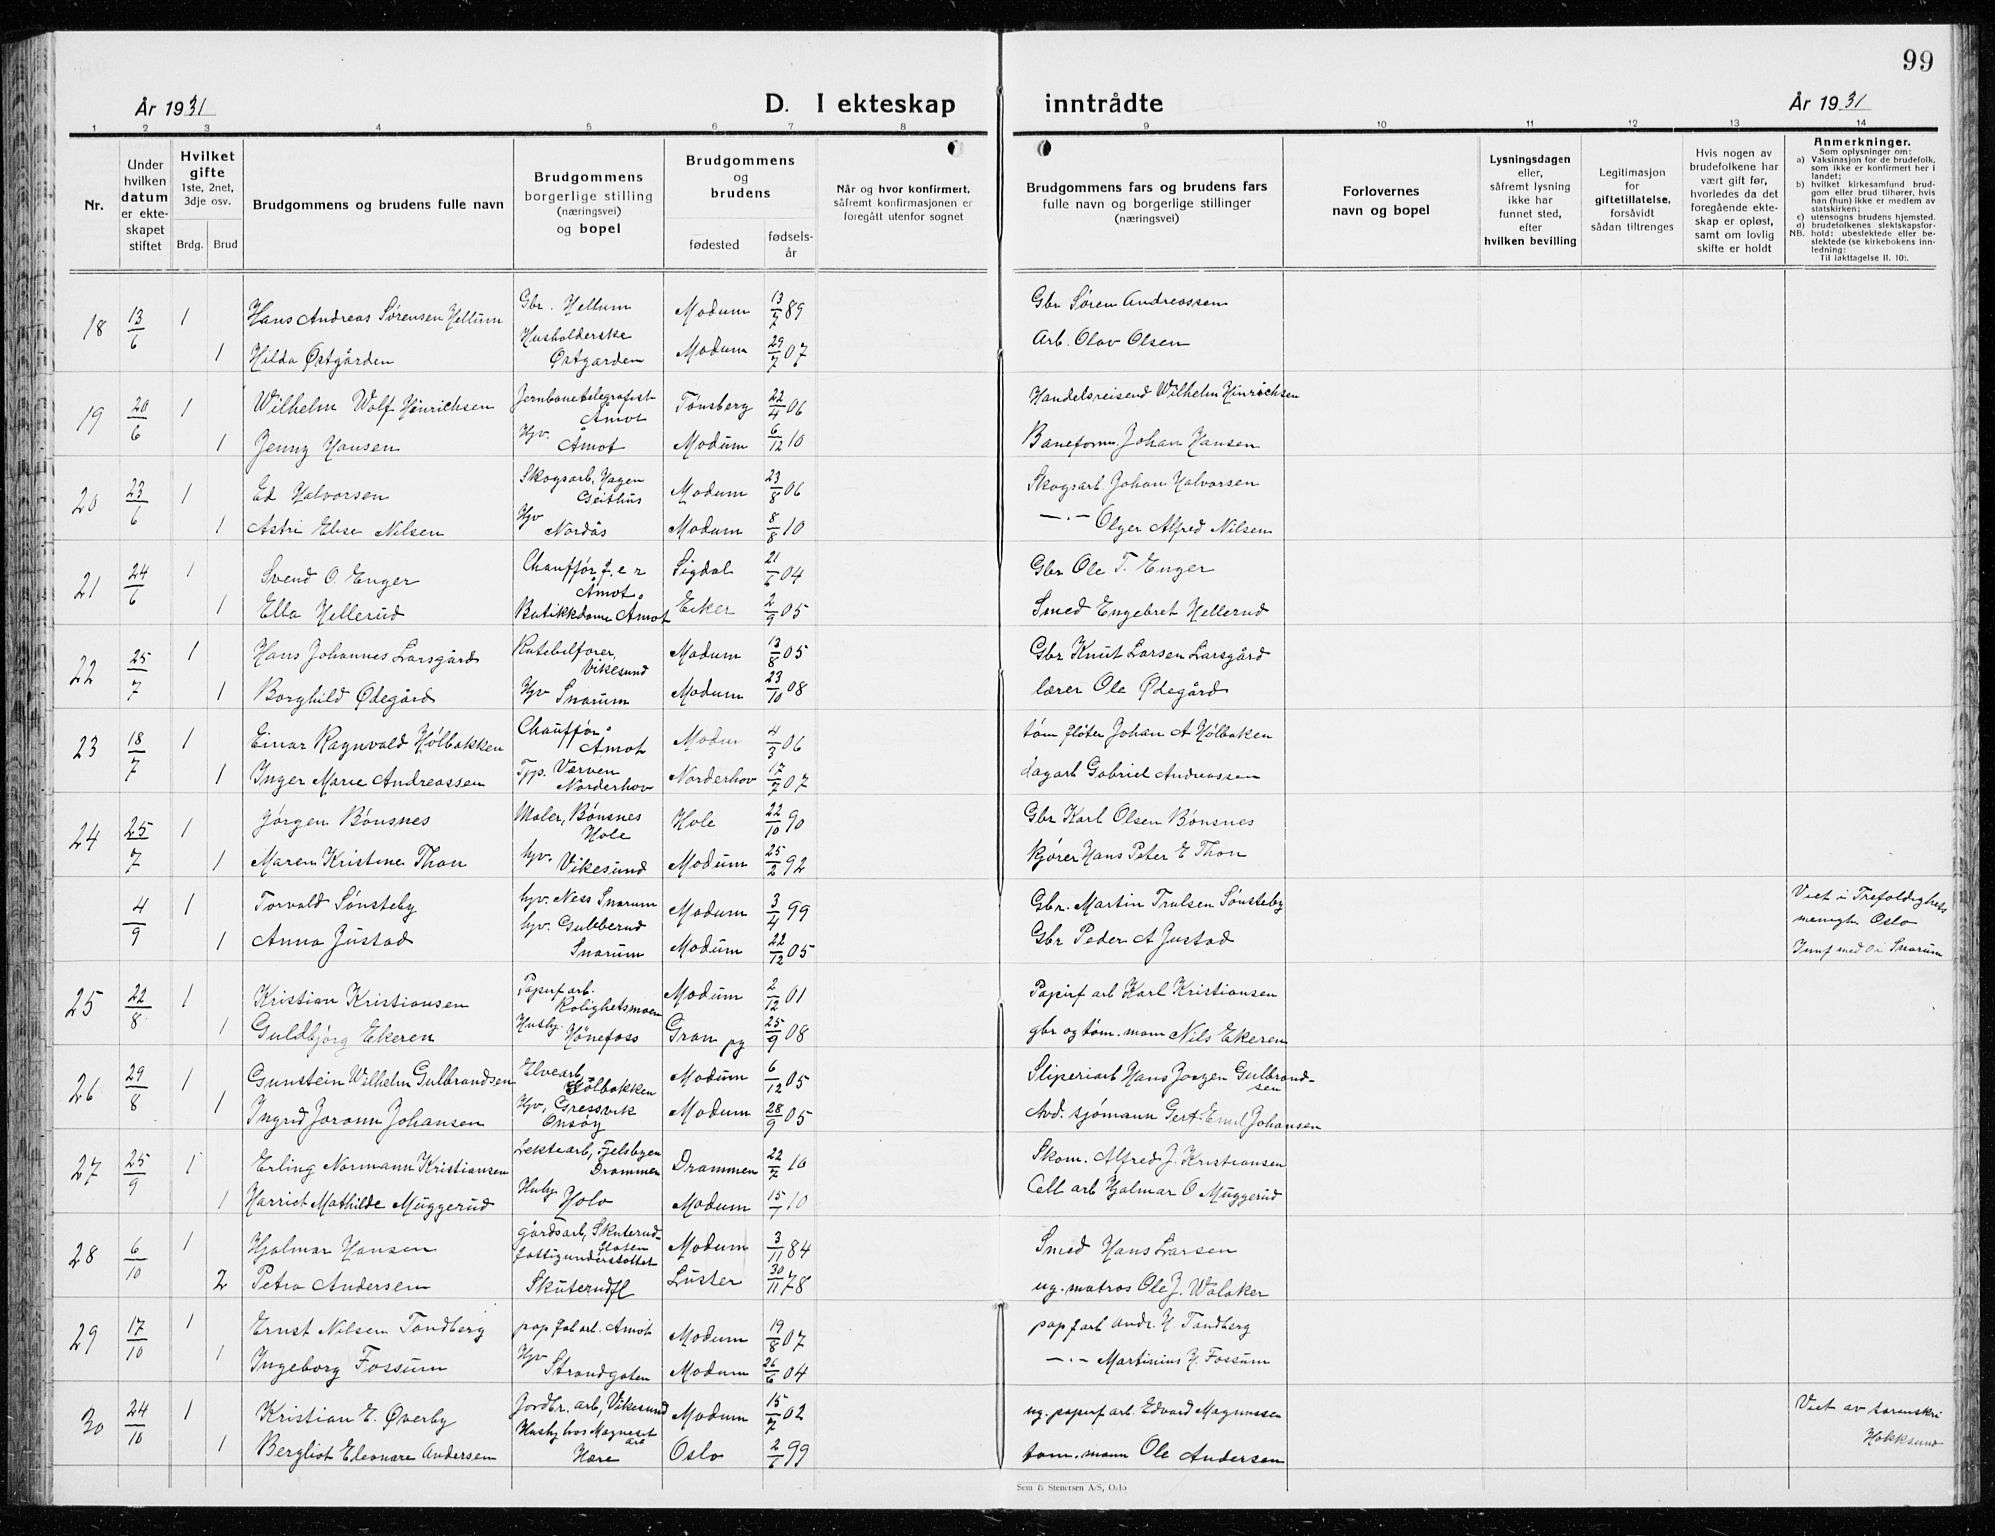 99
År 1931
D. I ekteskap
inntrådte
År 1931
1 2 3 4 5 6 7 8 9 10 11 12 13 14
Nr.
Under hvilken datum er ekteskapet stiftet
Hvilket gifte 1ste, 2net, 3dje osv.
Brdg. Brud
Brudgommens og brudens fulle navn
Brudgommens borgerlige stilling (næringsvei) og bopel
Brudgommens og brudens
fødested
fødselsår
Når og hvor konfirmert, såfremt konfirmasjonen er foregått utenfor sognet
Brudgommens fars og brudens fars fulle navn og borgerlige stillinger (næringsvei)
Forlovernes navn og bopel
Lysningsdagen eller, såfremt lysning ikke har funnet sted, efter hvilken bevilling
Legitimasjon for giftetillatelse, forsåvidt sådan tiltrenges
Hvis nogen av brudefolkene har vært gift før, hvorledes da det foregående ekteskap er opløst, samt om lovlig skifte er holdt
Anmerkninger.
Som oplysninger om:
a) Vaksinasjon for de brudefolk, som ikke er konfirmert her i landet;
b) hvilket kirkesamfund brudgom eller brud tilhører, hvis han (hun) ikke er medlem av statskirken;
c) utensogns brudens hjemsted.
d) brudefolkenes slektskapsforhold: ubeslektede eller beslektede (se kirkebokens innledning;
NB. Til iakttagelse II. 10).
18 13/6 1 Hans Andreas Sørensen Hellum Gbr. Hellum Modum 13/7 89 Gbr Søren Andreassen
1 Hilda Østgården Husholderske Østgarden Modum 29/7 07 Arb. Olav Olsen
19 20/6 1 Wilhelm Wolf Hinrichsen Jernbanetelegrafist Åmot Tønsberg 22/4 06 Handelsreisend Wilhelm Hinrichsen
1 Jenny Hansen Hjv. Åmot Modum 6/12 10 Baneform. Johan Hansen
20 23/6 1 Ed Halvorsen Skogsarb, Hagen Geithus Modum 23/8 06 Skogsarb. Johan Halvorsen
1 Astri Elise Nilsen Hjv Nordås Modum 8/8 10 — · — Olger Alfred Nilsen
21 24/6 1 Svend O. Enger Chauffør f. e r Åmot. Sigdal 21/6 04 Gbr Ole T. Enger
1 Ella Hellerud Butikkdame Åmot Eiker 2/9 05 Smed Engebret Hellerud
22 25/7 1 Hans Johannes Larsgård Rutebilfører, Vikesund Modum 13/8 05 Gbr Knut Larsen Larsgård
1 Borghild Ødegård Hjv Snarum Modum 23/10 08 lærer Ole Ødegård
23 18/7 1 Einar Ragnvald Hølbakken Chauffør Åmot Modum 4/3 06 tøm fløter Johan A Hølbaken
1 Inger Marie Andreassen Tjp. Værven Norderhov Norderhov 17/7 07 dagarb Gabriel Andreassen
24 25/7 1 Jørgen Bønsnes Maler, Bønsnes Hole Hole 22/10 90 Gbr Karl Olsen Bønsnes
1 Maren Kristine Thon hjv. Vikesund Modum 25/2 92 kjører Hans Peter E Thon
4/9 1 Torvald Sønsteby hjv. Ness Snarum Modum 3/4 99 Gbr. Martin Trulsen Sønsteby Viet i Trefoldighets menigh Oslo
1 Anna Justad hjv. Gulberud Snarum Modum 22/12 05 Gbr Peder A Justad Innf med 0 i Snarum
25 22/8 1 Kristian Kristiansen Papirf arb. Rolighetsmoen Modum 2/12 01 Papirf arb Karl Kristiansen
1 Guldbjørg Ekeren Hushj. Hønefoss Gran 25/9 08 gbr og tøm. mann Nils Ekeren
26 29/8 1 Gunstein Wilhelm Gulbrandsen Elvearb Hølbakken Modum 6/12 05 Sliperiarb Hans Jorgen Gulbrandsen
1 Ingrid Jorann Johansen Hjv, Gressvik Onsøy Modum 28/9 05 Avd. sjømann Gert Emil Johansen
27 25/9 1 Erling Normann Kristiansen Lektearb, Fjelsbyen Drammen Drammen 22/7 10 Skom. Alfred J. Kristiansen
1 Harriet Mathilde Muggerud Hushj Holo Modum 15/7 10 Cell arb Hjalmar O Muggerud
28 6/10 1 Hjalmar Hansen gårdsarb, Skuterudflaten Modum 3/11 84 Smed Hans Larsen
2 Petra Andersen fattigunderstøttet Skuterudfl Luster 30/11 78 ug. matros Ole J. Walaker
29 17/10 1 Ernst Nilsen Tandberg pap fab arb. Åmot Modum 19/8 07 pap f arb Andr. H. Tandberg
1 Ingeborg Fossum Hjv Strandgaten Modum 26/6 04 — · — Martinius H. Fossum
30 24/10 1 Kristian E. Øverby Jordbr. arb, Vikesund Modum 15/7 02 ug. papirf arb. Edvard Magnussen Viet av sorenskri Hokksund
1 Bergliot Eleonore Andersen Hushj hos Magnesitarb Hære Oslo 2/6 99 tøm. mann Ole Andersen
Sem & Stenersen A/S, Oslo